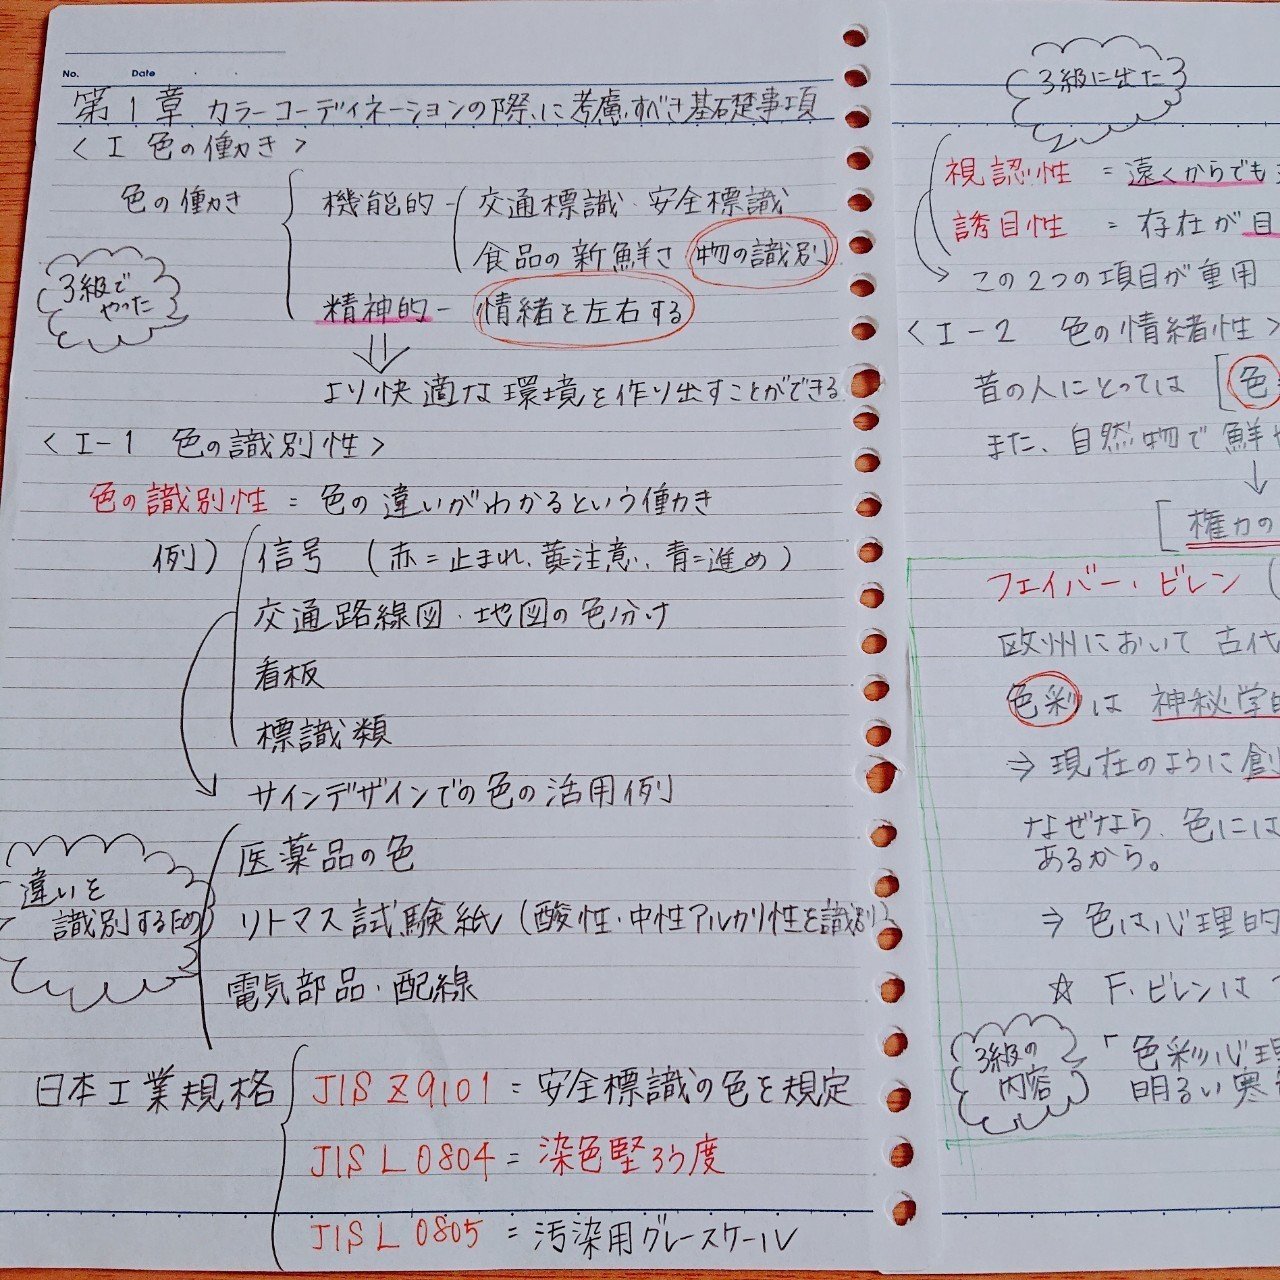 No. Date
第1章 カラーコーディネーションの際に考慮すべき基礎事項
<Ⅰ 色の働き>
色の働き
機能的 - 交通標識・安全標識
食品の新鮮さ 物の識別
3級で
やった
精神的 - 情緒を左右する
⇓
より快適な環境を作り出すことができる
<Ⅰ-1 色の識別性>
色の識別性 = 色の違いがわかるという働き
例) 信号 (赤=止まれ、黄=注意、青=進め)
交通路線図・地図の色分け
看板
標識類
サインデザインでの色の活用例
違いを
識別するため
医薬品の色
リトマス試験紙 (酸性・中性アルカリ性を識別)
電気部品・配線
日本工業規格
JIS Z9101 = 安全標識の色を規定
JIS L 0804 = 染色堅ろう度
JIS L 0805 = 汚染用グレースケール
3級に出た
視認性 = 遠くからでも
誘目性 = 存在が目
→ この2つの項目が重用
<Ⅰ-2 色の情緒性>
昔の人にとっては [色
また、自然物で鮮
↓
[権力の
フェイバー・ビレン (
欧州において 古代
色彩は 神秘学的
⇒ 現在のように創
なぜなら、色には
あるから。
⇒ 色は心理的
☆ F・ビレンは
3級の
内容
「色彩心理
明るい寒